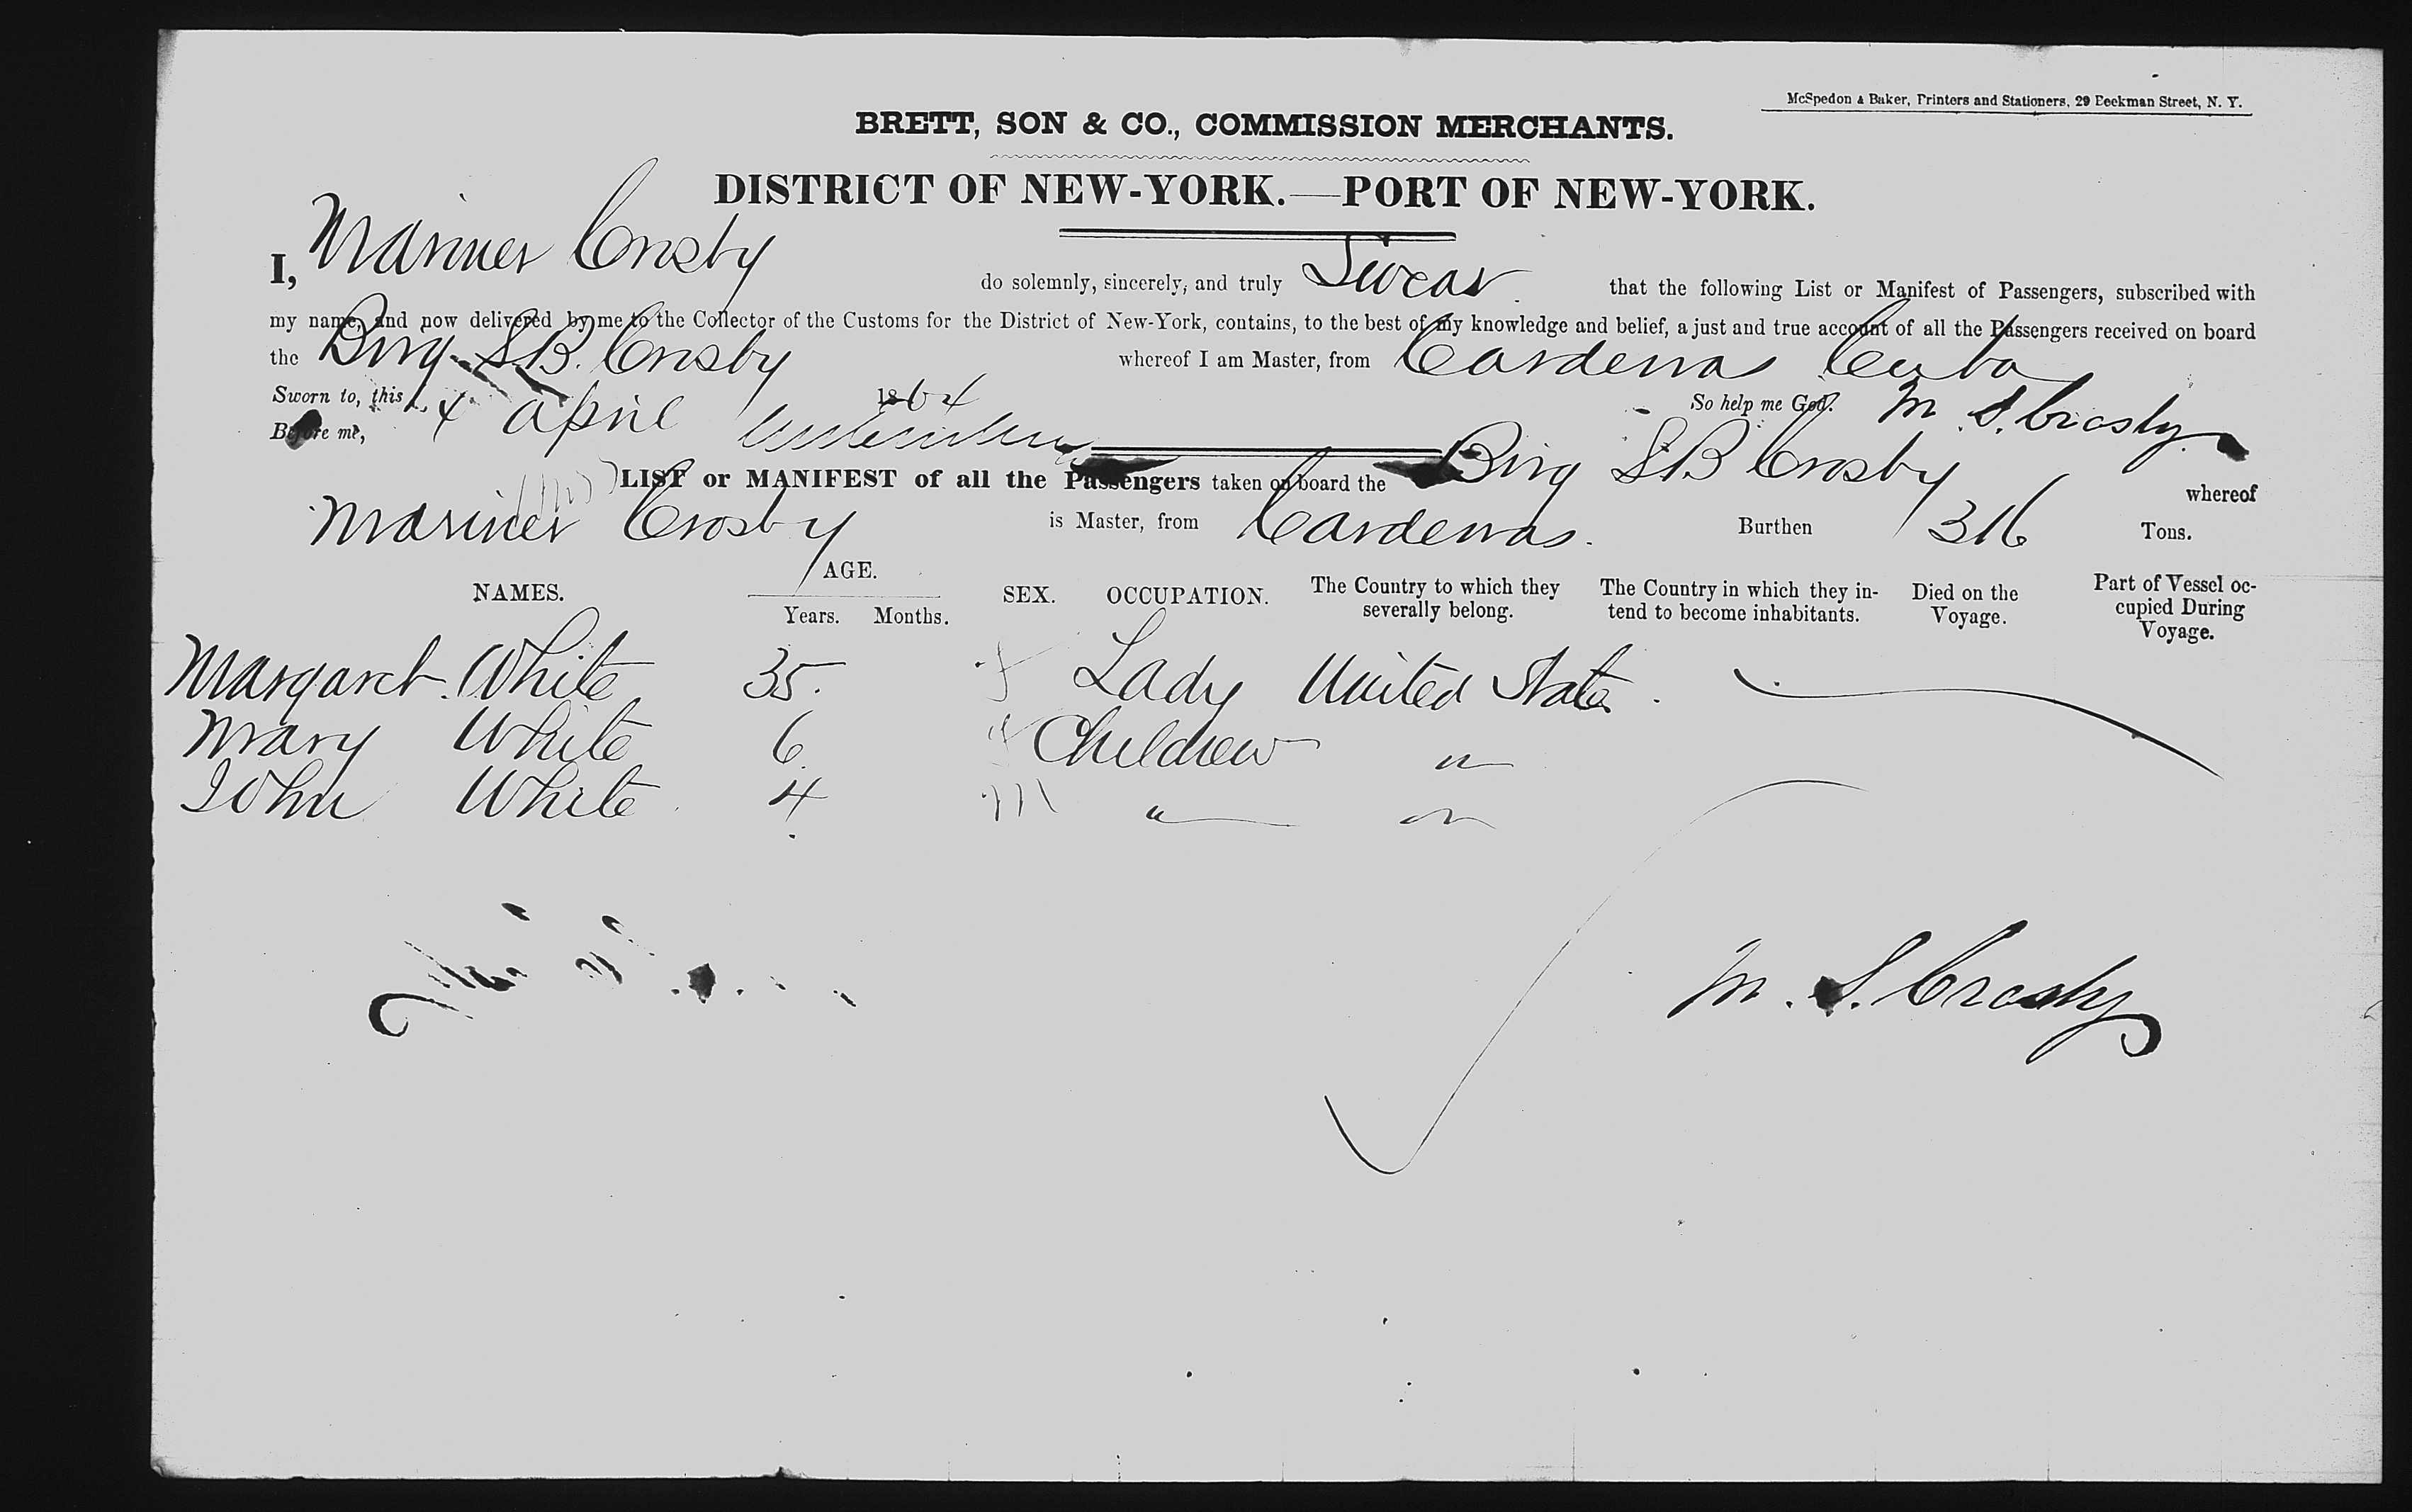 McSpedon & Baker, Printers and Stationers, 29 Beekman Street, N. Y.
BRETT, SON & CO., COMMISSION MERCHANTS.
DISTRICT OF NEW-YORK.—PORT OF NEW-YORK.
I, Mariner Crosby do solemnly, sincerely, and truly Swear that the following List or Manifest of Passengers, subscribed with
my name, and now delivered by me to the Collector of the Customs for the District of New-York, contains, to the best of my knowledge and belief, a just and true account of all the Passengers received on board
the Brig S.B. Crosby whereof I am Master, from Cardenas Cuba
Sworn to, this 4 April 1864 So help me God. M. S. Crosby
Before me,
LIST or MANIFEST of all the Passengers taken on board the Brig SB Crosby whereof
Mariner Crosby is Master, from Cardenas. Burthen 316 Tons.
NAMES. AGE. Years. Months. SEX. OCCUPATION. The Country to which they severally belong. The Country in which they intend to become inhabitants. Died on the Voyage. Part of Vessel occupied During Voyage.
Margaret White 35. f Lady United States.
Mary White 6 f Children "
John White 4 m " "
M. S. Crosby